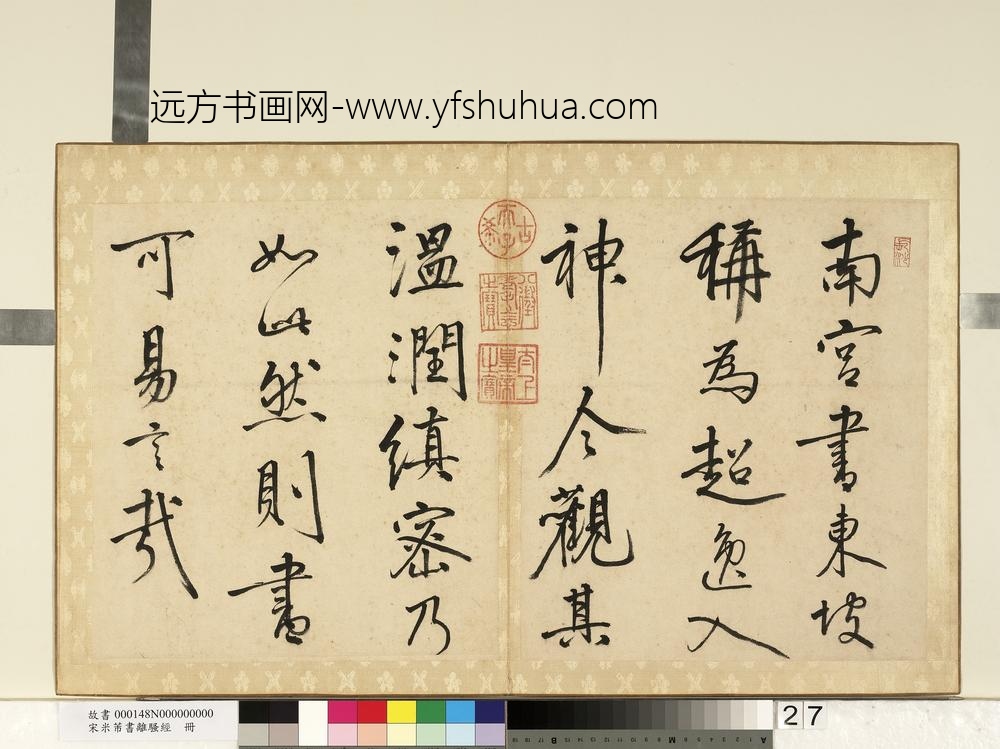 远方书画网-www.yfshuhua.com
南宮書東坡
稱為超逸入
神今觀其
溫潤縝密乃
如此然則書
可易言哉
古希天子
八徵耄念之寶
太上皇帝之寶
故書 000148N000000000
宋米芾書離騷經 冊
27